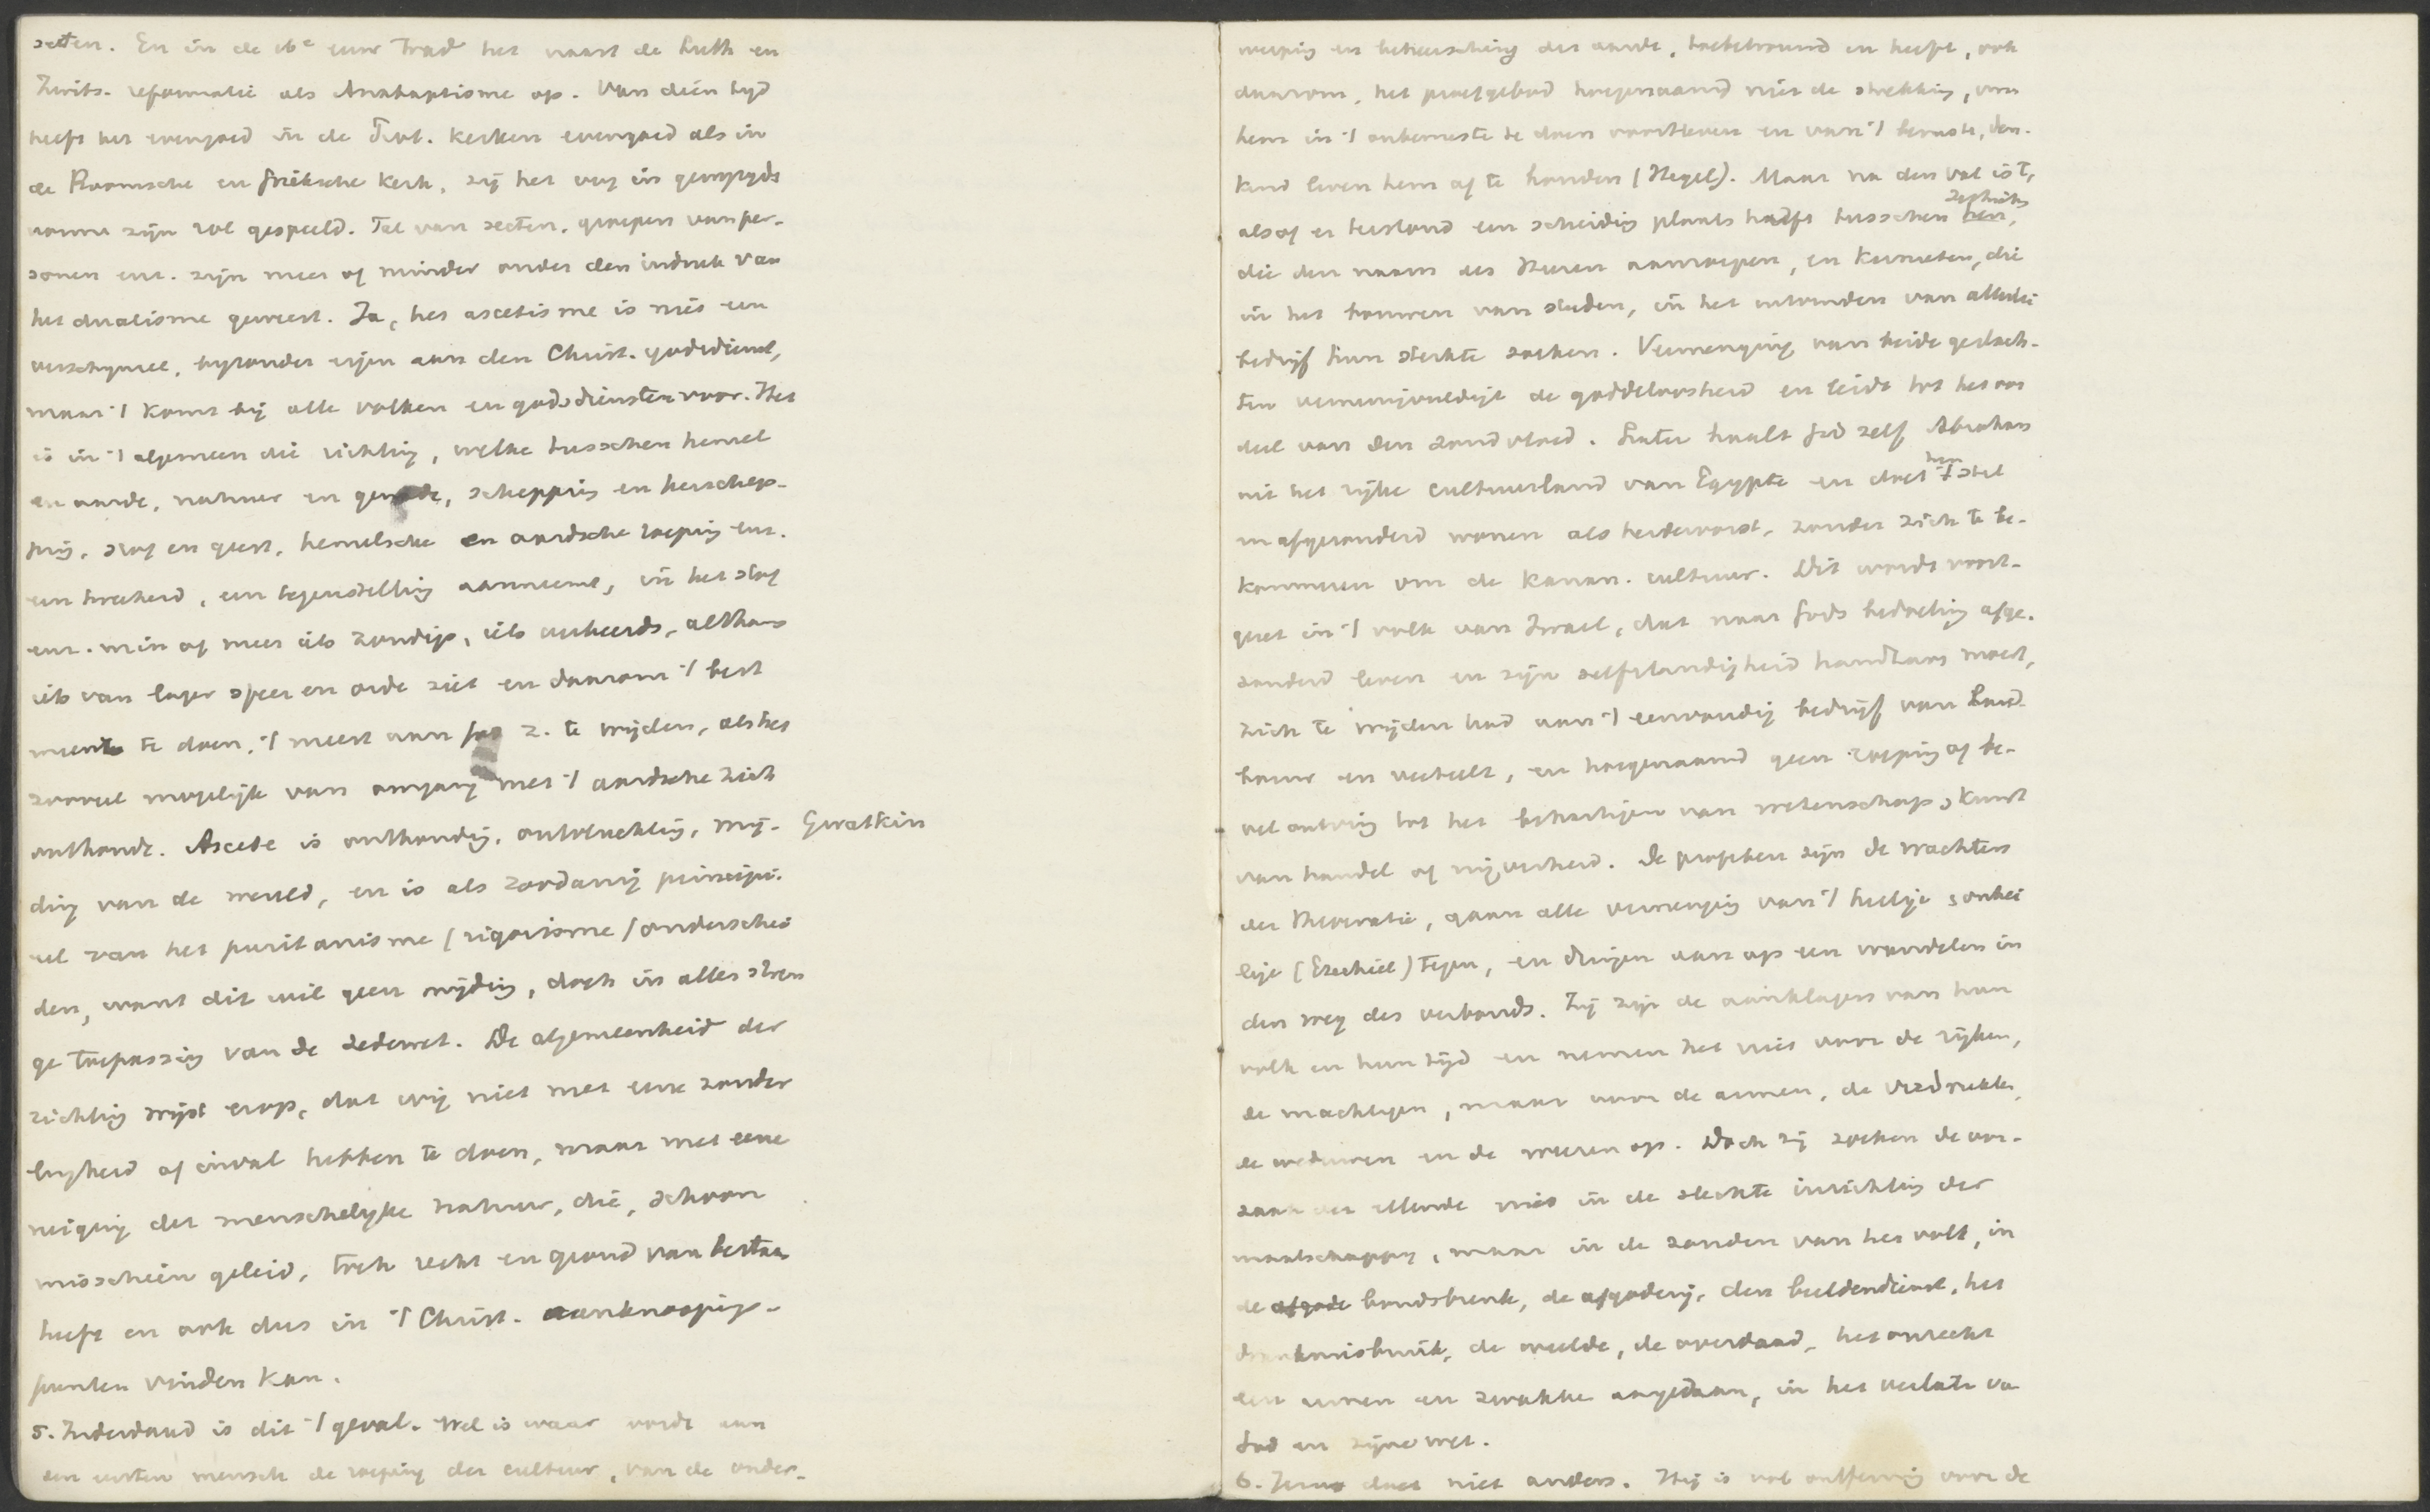 secten. En in de 16e eeuw trad het naast de Luth en
Zwits. reformatie als Anabaptisme op. Van dien tyd
heeft het evengoed in de Prot. kerken evengoed als in
de Roomsche en Grieksche kerk, zij het ook in gewijzigde
vorm zijn rol gespeeld. Tal van secten, groepen van per-
sonen enz. zijn meer of minder onder den indruk van
het dualisme geweest. Ja, het ascetisme is niet een
verschijnsel, byzonder eigen aan den Christ. godsdienst,
maar 't komt bij alle volken en godsdiensten voor. Het
is in 't algemeen die richting, welke tusschen hemel
en aarde, natuur en genade, schepping en herschep-
ping, stof en geest, hemelsche en aardsche roeping enz.
een tweeheid, een tegenstelling aanneemt, in het stof
enz. min of meer iets zondigs, iets verkeerds, althans
iets van lager sfeer en orde ziet en daarom 't best
meent te doen, 't meest aan God z. te wijden, als het
zooveel mogelijk van omgang met 't aardsche zich
onthoudt. Ascese is onthouding, onttrekking, mij- Gwatkin
ding van de wereld, en is als zoodanig principi-
eel van het puritanisme (rigorisme) onderschei
den, want dit wil geen mijding, doch in alles stren
ge toepassing van de zedewet. De algemeenheid der
richting wijst erop, dat wij niet met eene zonder
lingheid of inval hebben te doen, maar met eene
neiging der menschelyke natuur, die, schoon
misschien geleid, toch recht en grond van bestaan
heeft en ook dus in 't Christ. aanknoopings-
punten vinden kan.
5. Inderdaad is dit 't geval. Wel is waar wordt aan
den eersten mensch de roeping der cultuur, van de onder-
werping en beheersching der aarde, toebetrouwd en heeft, ook
daarom, het proefgebod hoegenaamd niet de strekking, om
hem in 't onbewuste te doen voortleven en van 't bewuste, den-
kend leven hem af te houden (Hegel). Maar na den val is 't,
alsof er terstond een scheiding plaats heeft tusschen Sethieten
die den naam des Heeren aanroepen, en Kainieten, die
in het bouwen van steden, in het uitvinden van allerlei
bedrijf hun sterkte zoeken. Vermenging van beide geslach-
ten vermenigvuldigt de goddeloosheid en leidt tot het oor
deel van den zondvloed. Later haalt God zelf Abraham
uit het rijke cultuurland van Egypte en doet hem stil
en afgezonderd wonen als herdervorst, zonder zich te be-
kommeren om de Kanan. cultuur. Dit wordt voort-
gezet in 't volk van Israel, dat naar Gods bedoeling afge-
zonderd leven en zijn zelfstandigheid handhaven moest,
zich te wijden had aan 't eenvoudig bedrijf van land-
bouw en veeteelt, en hoegenaamd geen roeping of be-
vel ontving tot het behartigen van wetenschap, kunst
van handel of nijverheid. De profeten zijn de wachters
der theocratie, gaan alle vermenging van 't heilige en onhei
lige (Ezechiel) tegen, en dringen aan op een wandelen in
den weg des verbonds. Zij zijn de aanklagers van hun
volk en hun tijd en nemen het niet voor de rijken,
de machtigen, maar voor de armen, de verdrukten,
de weduwen en de weezen op. Doch zij zoeken de oor-
zaak der ellende niet in de slechte inrichting der
maatschappy, maar in de zonden van het volk, in
de bondsbreuk, de afgoderij, den beeldendienst, het
drankmisbruik, de weelde, de overdaad, het onrecht
den armen en zwakke aangedaan, in het verlaten va
God en zijne wet.
6. Jezus doet niet anders. Hij is vol ontferming voor de